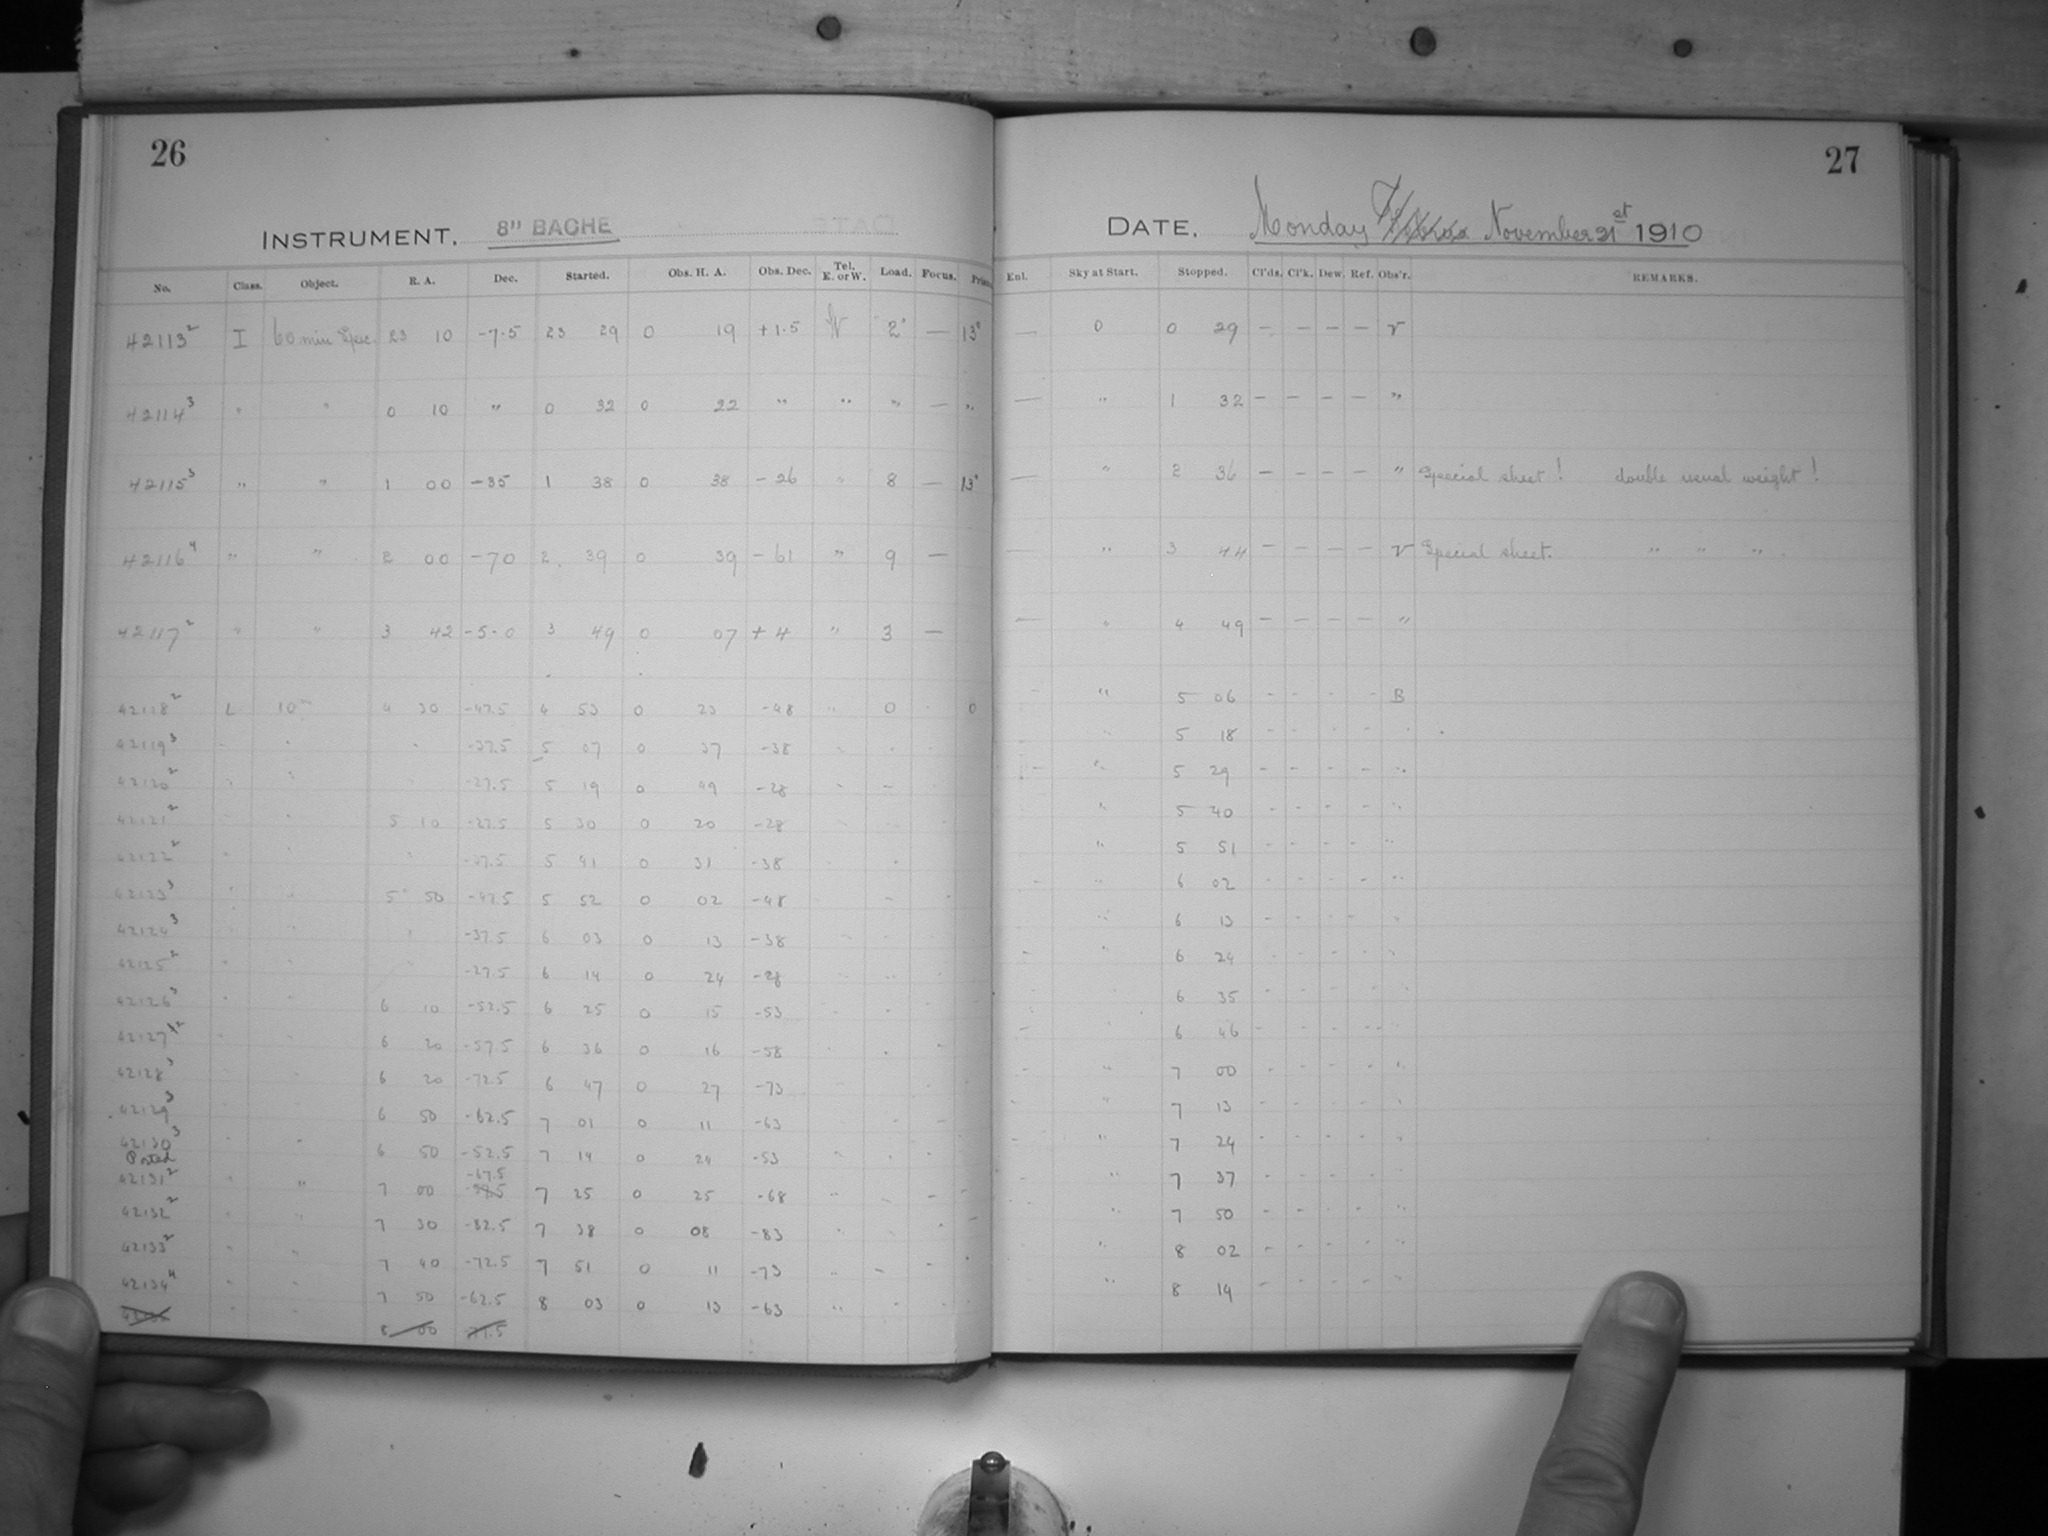 26
27
INSTRUMENT. 8" BACHE
DATE. Monday November 21st 1910
No. Class. Object. R. A. Dec. Started. Obs. H. A. Obs. Dec. Tel. E. or W. Load. Focus. Enl. Sky at Start. Stopped. Cl'ds. Cl'k. Dew. Ref. Obs'r. REMARKS.
42113² I 60 min Spec. 23 10 -7.5 23 29 0 19 +1.5 W 2 — 13 — 0 0 29 - - - - r
42114³ " " 0 10 " 0 32 0 22 " " " — " — " 1 32 - - - - "
42115³ " " 1 00 -35 1 38 0 38 -26 " 8 — 13 — " 2 36 - - - - " Special sheet! double usual weight!
42116⁴ " " 2 00 -70 2 39 0 39 -61 " 9 — — " 3 44 - - - - r Special sheet. " " "
42117² " " 3 42 -5.0 3 49 0 07 +4 " 3 — — " 4 49 - - - - "
42118² L 10ᵐ 4 30 -47.5 4 53 0 23 -48 " 0 - 0 - " 5 06 - - - - B
42119³ -37.5 5 07 0 37 -38 5 18
42120² -27.5 5 19 0 49 -28 5 29
42121² 5 10 -27.5 5 30 0 20 -28 5 40
42122² 5 41 0 31 -38 5 51
42123³ 5 50 -47.5 5 52 0 02 -48 6 02
42124³ -37.5 6 03 0 13 -38 6 13
42125² -27.5 6 14 0 24 -28 6 24
42126³ 6 10 -52.5 6 25 0 15 -53 6 35
42127² 6 20 -57.5 6 36 0 16 -58 6 46
42128³ 6 20 -72.5 6 47 0 27 -73 7 00
42129³ 6 50 -62.5 7 01 0 11 -63 7 13
42130³ 6 50 -52.5 7 14 0 24 -53 7 24
-67.5
42131² " 7 00 7 25 0 25 -68 7 37
42132² 7 30 -82.5 7 38 0 08 -83 7 50
42133² 7 40 -72.5 7 51 0 11 -73 8 02
42134⁴ 7 50 -62.5 8 03 0 13 -63 8 14
8 00